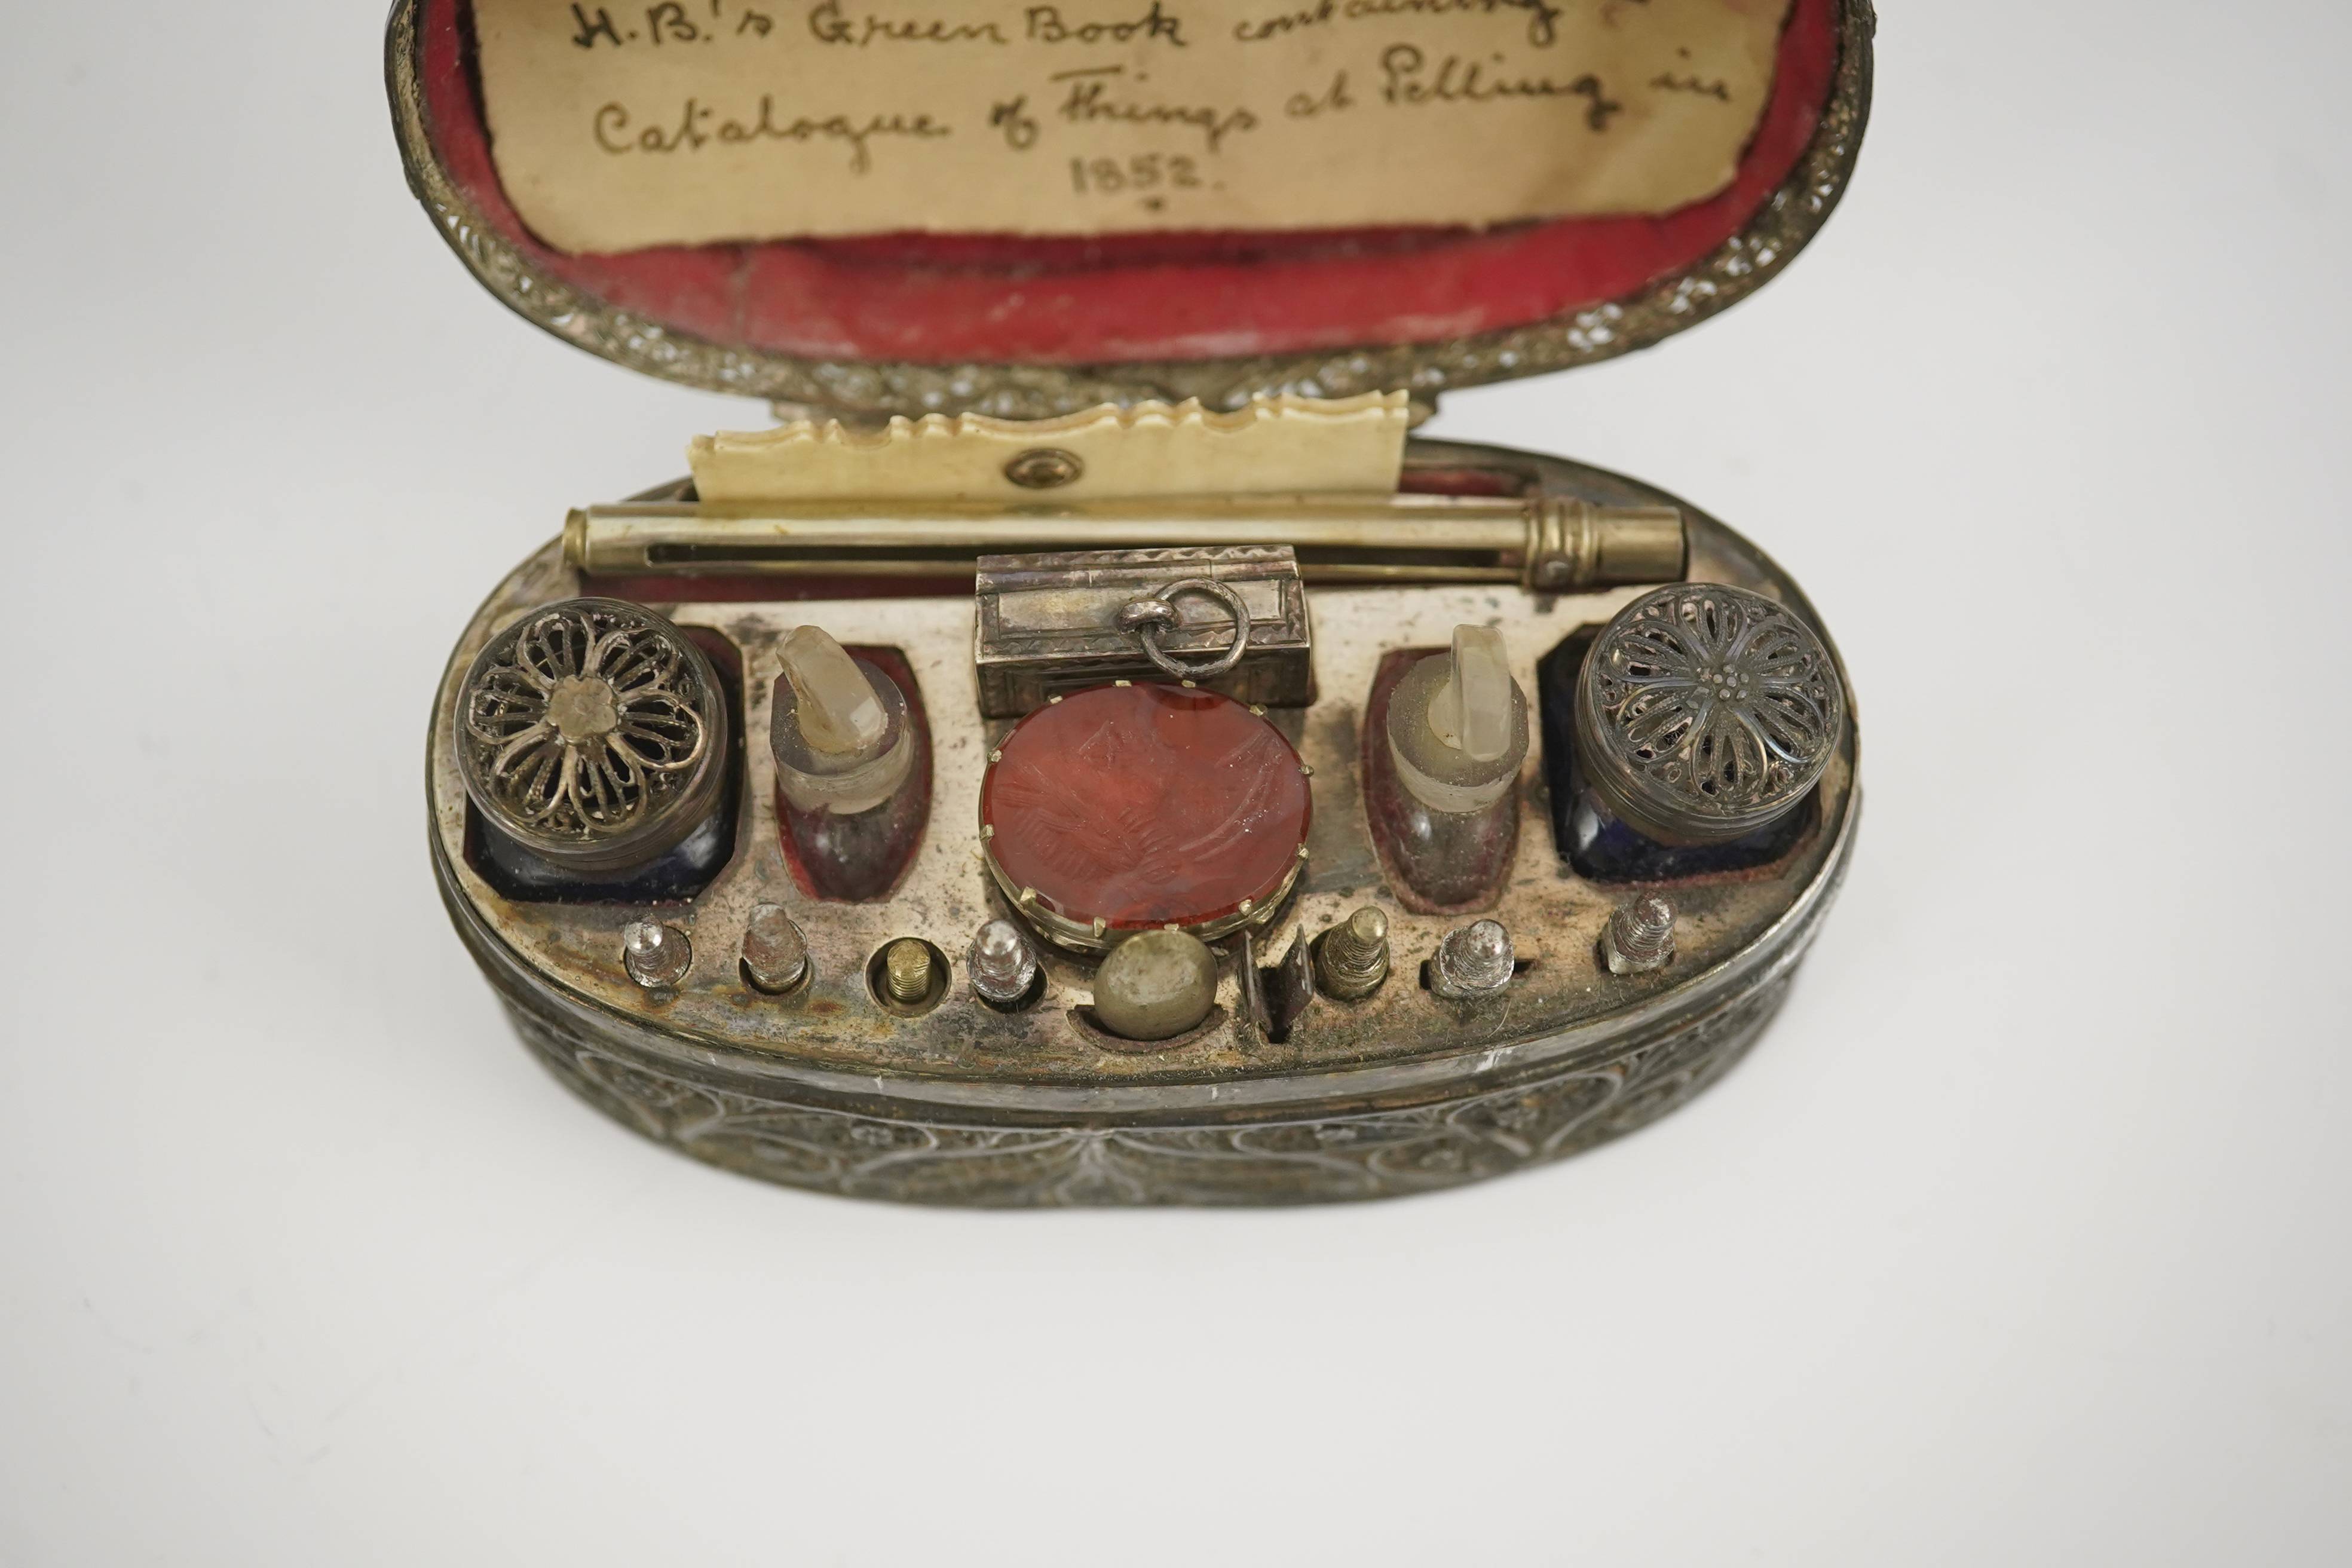 H.B.'s Green Book containing
Catalogue of Things at Pelling in
1852.